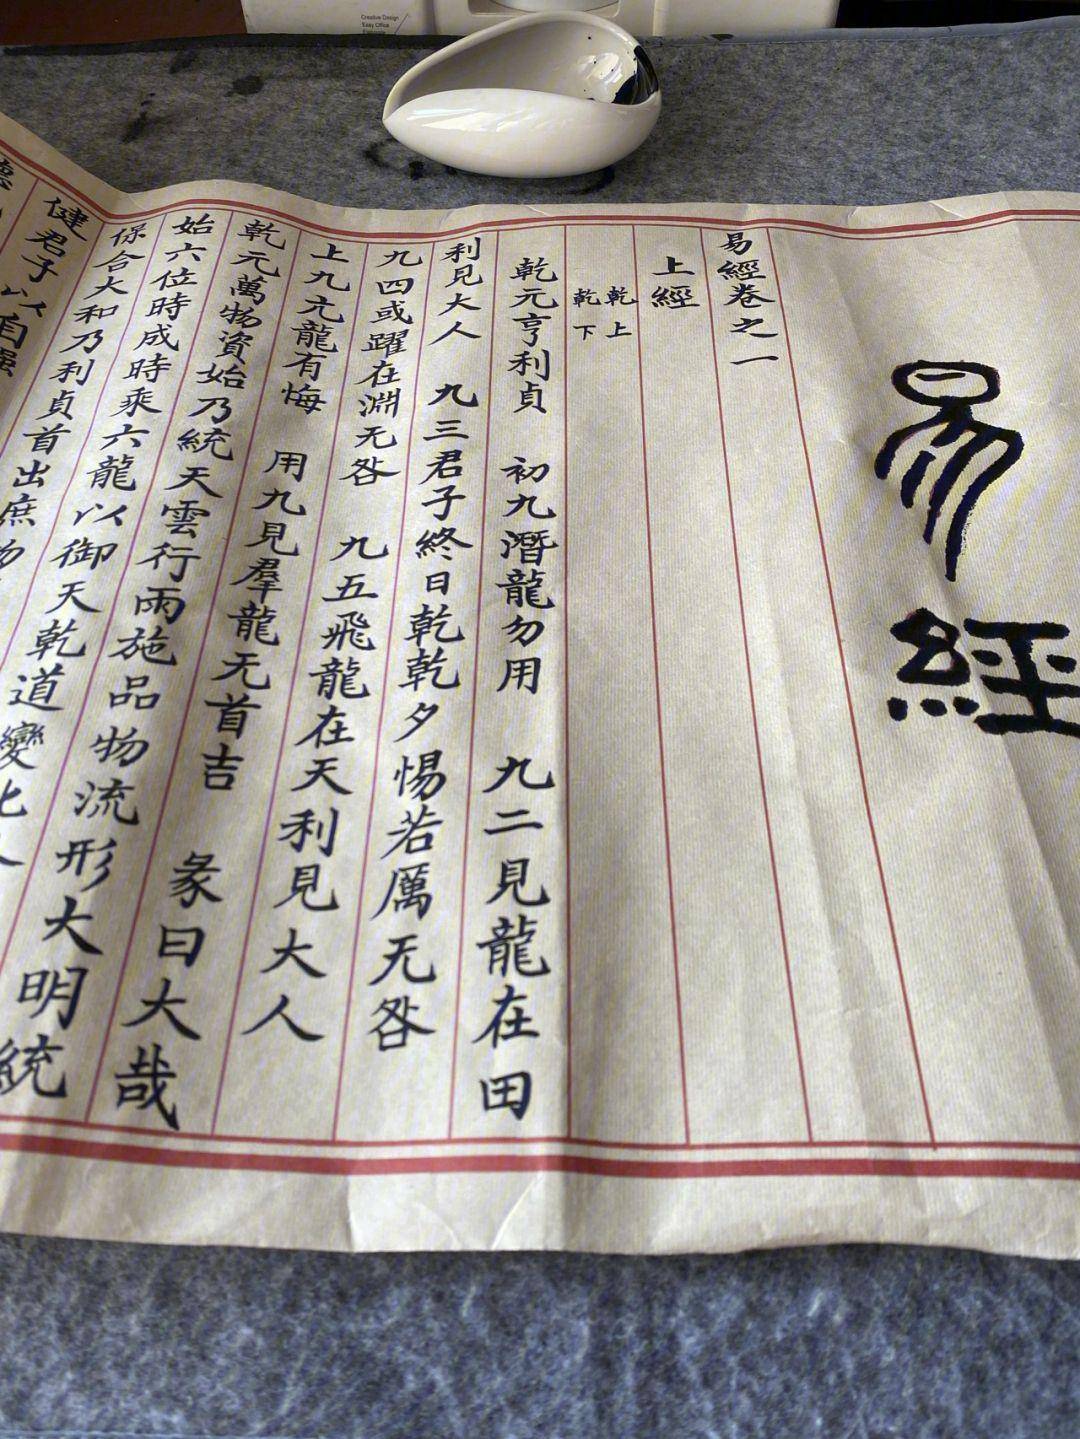 易經
易經卷之一
上經
乾上
乾下
乾元亨利貞 初九潛龍勿用 九二見龍在田
利見大人 九三君子終日乾乾夕惕若厲无咎
九四或躍在淵无咎 九五飛龍在天利見大人
上九亢龍有悔 用九見羣龍无首吉 彖曰大哉
乾元萬物資始乃統天雲行雨施品物流形大明
始六位時成時乘六龍以御天乾道變化
保合大和乃利貞首出庶物
健君子以自強
Creative Design
Easy Office